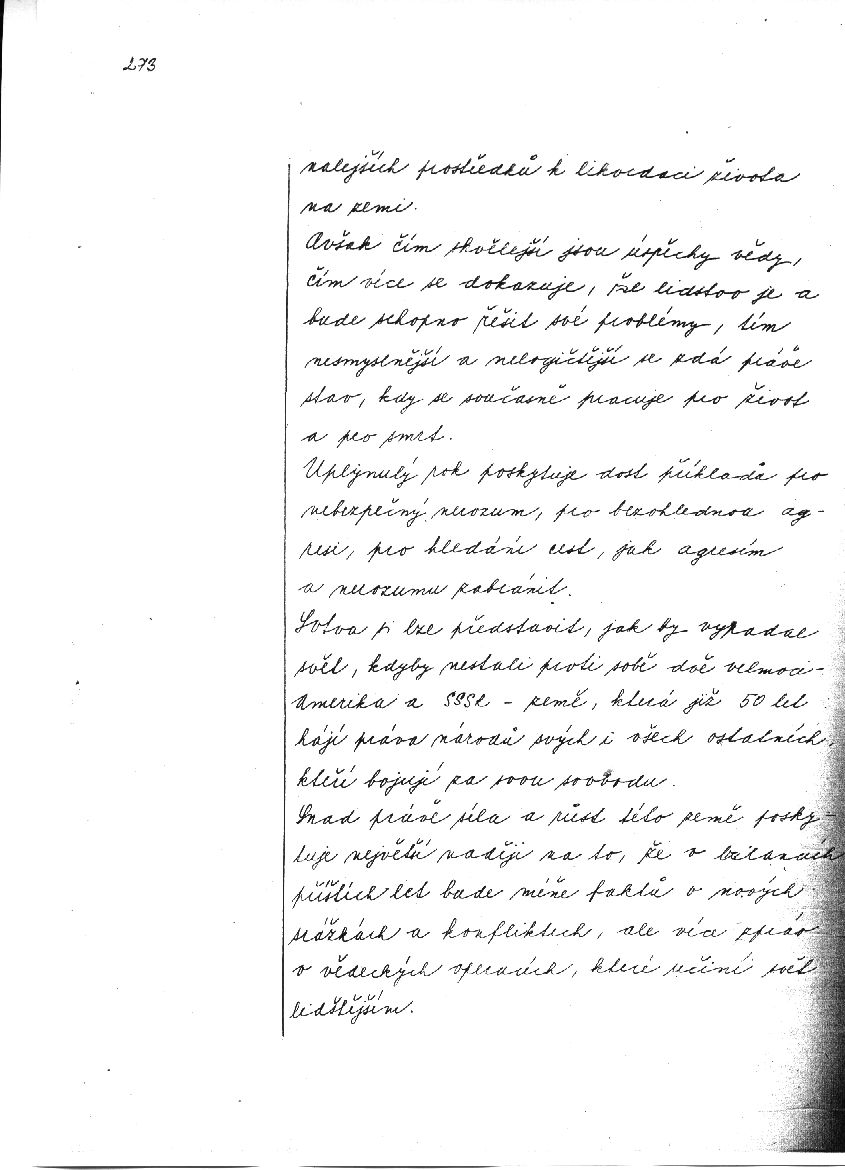 273
nalejších prostředků k likvidaci života
na zemi.
Avšak čím skvělejší jsou úspěchy vědy,
čím více se dokazuje, že lidstvo je a
bude schopno řešit své problémy, tím
nesmyslnější a nelogičtější se zdá právě
stav, kdy se současně pracuje pro život
a pro smrt.
Uplynulý rok poskytuje dost příkladů pro
nebezpečný nerozum, pro bezohlednou ag-
resi, pro hledání cest, jak agresím
a nerozumu zabránit.
Sotva si lze představit, jak by vypadal
svět, kdyby nestáli proti sobě dvě velmoci -
Amerika a SSSR - země, která již 50 let
hájí práva národů svých i všech ostatních,
kteří bojují za svou svobodu.
Snad právě síla a růst této země posky-
tuje největší naději na to, že v bilancích
příštích let bude méně faktů o nových
srážkách a konfliktech, ale více zpráv
o vědeckých operacích, které učiní svět
lidštějším.